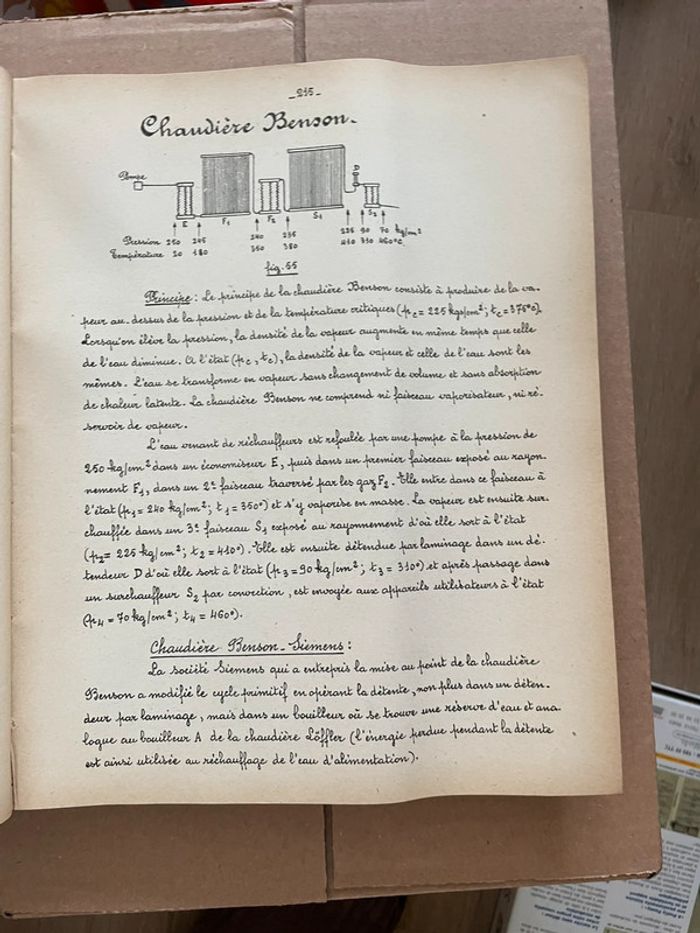 _215_
Chaudière Benson_
Pompe
D
E F1 F2 S1 S2
Pression 250 245 240 235 225 90 70 kg/cm²
Température 20 180 350 380 410 310 460°C.
fig. 55
Principe : Le principe de la chaudière Benson consiste à produire de la va-
peur au-dessus de la pression et de la température critiques (pc = 225 kgs/cm² ; tc = 375°c).
Lorsqu'on élève la pression, la densité de la vapeur augmente en même temps que celle
de l'eau diminue. A l'état (pc, tc), la densité de la vapeur et celle de l'eau sont les
mêmes. L'eau se transforme en vapeur sans changement de volume et sans absorption
de chaleur latente. La chaudière Benson ne comprend ni faisceau vaporisateur, ni ré-
servoir de vapeur.
L'eau venant de réchauffeurs est refoulée par une pompe à la pression de
250 kg/cm² dans un économiseur E, puis dans un premier faisceau exposé au rayon-
nement F1, dans un 2e faisceau traversé par les gaz F2. Elle entre dans ce faisceau à
l'état (p1 = 240 kg/cm² ; t1 = 350°) et s'y vaporise en masse. La vapeur est ensuite sur-
chauffée dans un 3e faisceau S1 exposé au rayonnement d'où elle sort à l'état
(p2 = 225 kg/cm² ; t2 = 410°). Elle est ensuite détendue par laminage dans un dé-
tendeur D d'où elle sort à l'état (p3 = 90 kg/cm² ; t3 = 310°) et après passage dans
un surchauffeur S2 par convection, est envoyée aux appareils utilisateurs à l'état
(p4 = 70 kg/cm² ; t4 = 460°).
Chaudière Benson_Siemens :
La société Siemens qui a entrepris la mise au point de la chaudière
Benson a modifié le cycle primitif en opérant la détente, non plus dans un déten-
deur par laminage, mais dans un bouilleur où se trouve une réserve d'eau et ana-
logue au bouilleur A de la chaudière Löffler (l'énergie perdue pendant la détente
est ainsi utilisée au réchauffage de l'eau d'alimentation).